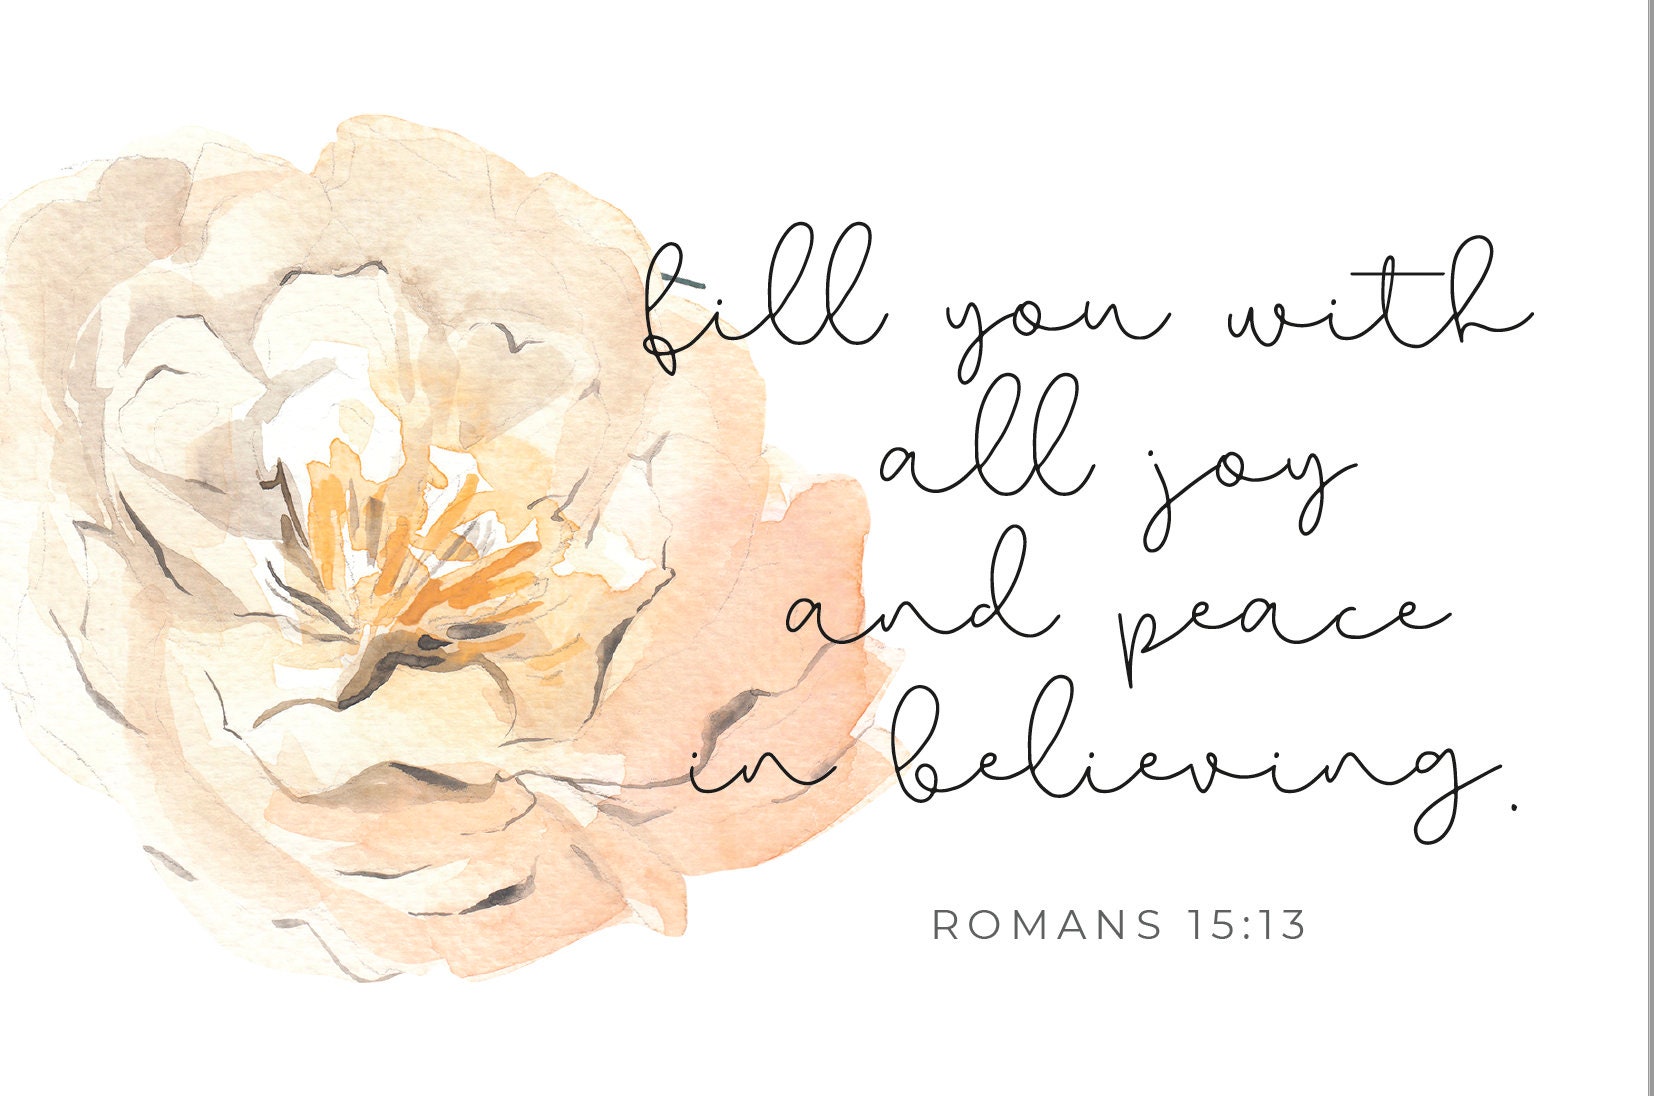 fill you with
all joy
and peace
in believing.
ROMANS 15:13